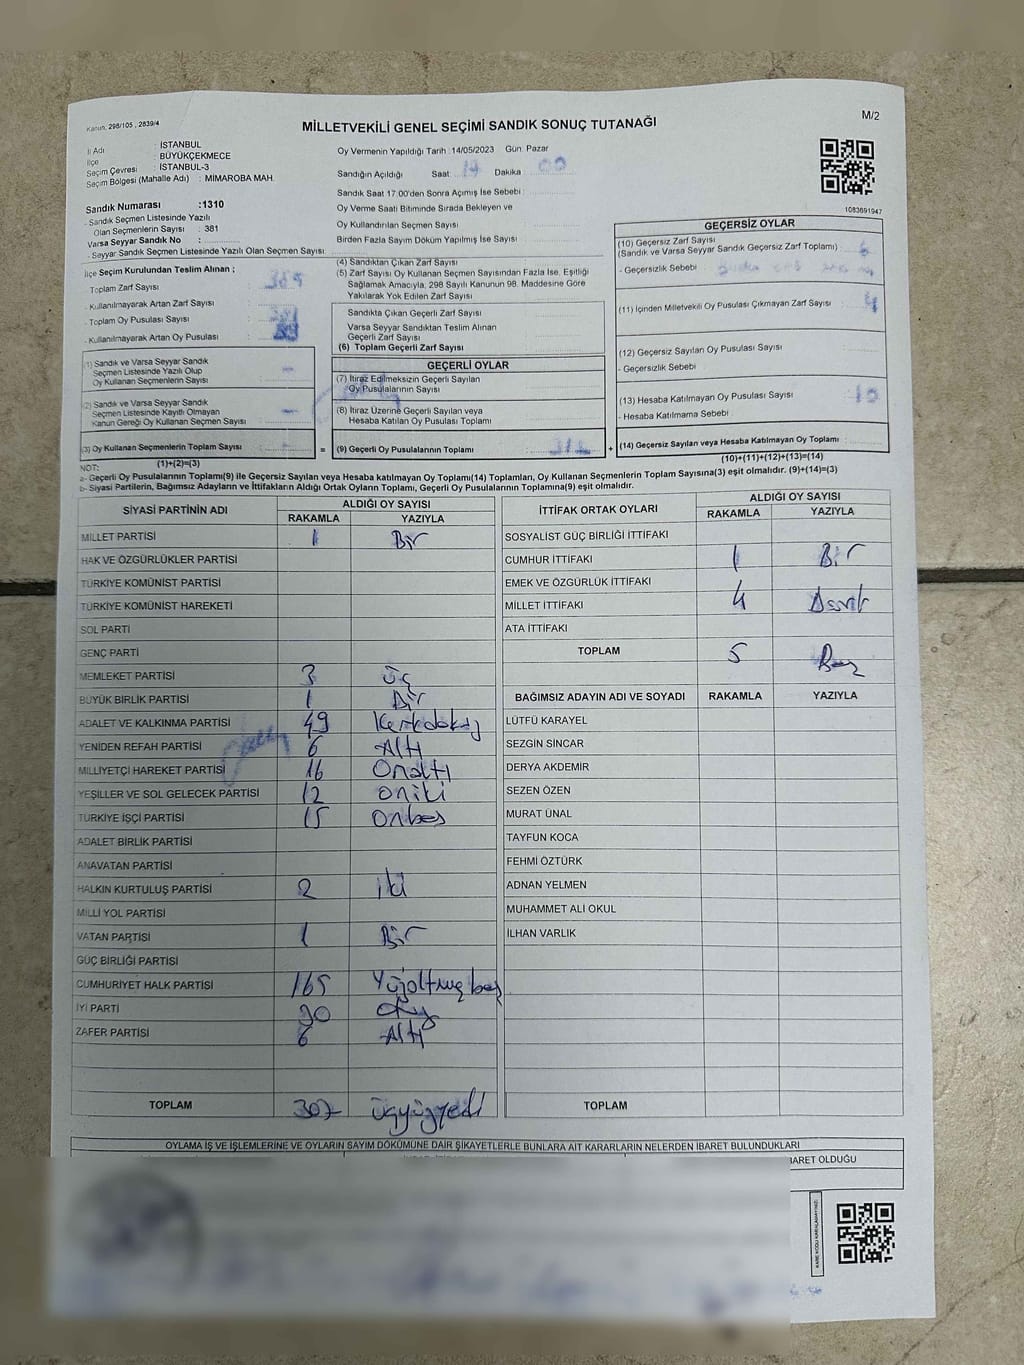 Kanun, 298/105, 2839/4
M/2
MİLLETVEKİLİ GENEL SEÇİMİ SANDIK SONUÇ TUTANAĞI
İl Adı : İSTANBUL
İlçe : BÜYÜKÇEKMECE
Seçim Çevresi : İSTANBUL-3
Seçim Bölgesi (Mahalle Adı) : MİMAROBA MAH.
Sandık Numarası :1310
- Sandık Seçmen Listesinde Yazılı
Olan Seçmenlerin Sayısı : 381
Varsa Seyyar Sandık No :
- Seyyar Sandık Seçmen Listesinde Yazılı Olan Seçmen Sayısı:
Oy Vermenin Yapıldığı Tarih :14/05/2023 Gün: Pazar
Sandığın Açıldığı Saat: Dakika: 00
Sandık Saat 17.00'den Sonra Açılmış İse Sebebi :
Oy Verme Saati Bitiminde Sırada Bekleyen ve
Oy Kullandırılan Seçmen Sayısı :
Birden Fazla Sayım Döküm Yapılmış İse Sayısı :
1083691947
İlçe Seçim Kurulundan Teslim Alınan ;
- Toplam Zarf Sayısı :
- Kullanılmayarak Artan Zarf Sayısı :
- Toplam Oy Pusulası Sayısı :
- Kullanılmayarak Artan Oy Pusulası :
(1) Sandık ve Varsa Seyyar Sandık
Seçmen Listesinde Yazılı Olup
Oy Kullanan Seçmenlerin Sayısı :
(2) Sandık ve Varsa Seyyar Sandık
Seçmen Listesinde Kayıtlı Olmayan
Kanun Gereği Oy Kullanan Seçmen Sayısı :
(3) Oy Kullanan Seçmenlerin Toplam Sayısı :
(1)+(2)=(3)
(4) Sandıktan Çıkan Zarf Sayısı :
(5) Zarf Sayısı Oy Kullanan Seçmen Sayısından Fazla İse, Eşitliği
Sağlamak Amacıyla, 298 Sayılı Kanunun 98. Maddesine Göre
Yakılarak Yok Edilen Zarf Sayısı :
Sandıkta Çıkan Geçerli Zarf Sayısı :
Varsa Seyyar Sandıktan Teslim Alınan
Geçerli Zarf Sayısı :
(6) Toplam Geçerli Zarf Sayısı :
GEÇERLİ OYLAR
(7) İtiraz Edilmeksizin Geçerli Sayılan
Oy Pusulalarının Sayısı :
(8) İtiraz Üzerine Geçerli Sayılan veya
Hesaba Katılan Oy Pusulası Toplamı :
= (9) Geçerli Oy Pusulalarının Toplamı : 312 +
GEÇERSİZ OYLAR
(10) Geçersiz Zarf Sayısı
(Sandık ve Varsa Seyyar Sandık Geçersiz Zarf Toplamı) : 6
- Geçersizlik Sebebi :
(11) İçinden Milletvekili Oy Pusulası Çıkmayan Zarf Sayısı : 4
(12) Geçersiz Sayılan Oy Pusulası Sayısı :
- Geçersizlik Sebebi :
(13) Hesaba Katılmayan Oy Pusulası Sayısı : 10
- Hesaba Katılmama Sebebi :
(14) Geçersiz Sayılan veya Hesaba Katılmayan Oy Toplamı :
(10)+(11)+(12)+(13)=(14)
NOT:
a- Geçerli Oy Pusulalarının Toplamı(9) ile Geçersiz Sayılan veya Hesaba katılmayan Oy Toplamı(14) Toplamları, Oy Kullanan Seçmenlerin Toplam Sayısına(3) eşit olmalıdır. (9)+(14)=(3)
b- Siyasi Partilerin, Bağımsız Adayların ve İttifakların Aldığı Ortak Oyların Toplamı, Geçerli Oy Pusulalarının Toplamına(9) eşit olmalıdır.
SİYASİ PARTİNİN ADI ALDIĞI OY SAYISI
RAKAMLA YAZIYLA
MİLLET PARTİSİ 1 Bir
HAK VE ÖZGÜRLÜKLER PARTİSİ
TÜRKİYE KOMÜNİST PARTİSİ
TÜRKİYE KOMÜNİST HAREKETİ
SOL PARTİ
GENÇ PARTİ
MEMLEKET PARTİSİ 3 üç
BÜYÜK BİRLİK PARTİSİ 1 Bir
ADALET VE KALKINMA PARTİSİ 49
YENİDEN REFAH PARTİSİ 6 Altı
MİLLİYETÇİ HAREKET PARTİSİ 16 Onaltı
YEŞİLLER VE SOL GELECEK PARTİSİ 12 oniki
TÜRKİYE İŞÇİ PARTİSİ 15 Onbeş
ADALET BİRLİK PARTİSİ
ANAVATAN PARTİSİ
HALKIN KURTULUŞ PARTİSİ 2 iki
MİLLİ YOL PARTİSİ
VATAN PARTİSİ 1 Bir
GÜÇ BİRLİĞİ PARTİSİ
CUMHURİYET HALK PARTİSİ 165 Yüzaltmışbeş
İYİ PARTİ 30
ZAFER PARTİSİ 6 Altı
TOPLAM 307 üçyüzyedi
İTTİFAK ORTAK OYLARI ALDIĞI OY SAYISI
RAKAMLA YAZIYLA
SOSYALİST GÜÇ BİRLİĞİ İTTİFAKI
CUMHUR İTTİFAKI 1 Bir
EMEK VE ÖZGÜRLÜK İTTİFAKI
MİLLET İTTİFAKI 4 Dört
ATA İTTİFAKI
TOPLAM 5 Beş
BAĞIMSIZ ADAYIN ADI VE SOYADI RAKAMLA YAZIYLA
LÜTFÜ KARAYEL
SEZGİN SİNCAR
DERYA AKDEMİR
SEZEN ÖZEN
MURAT ÜNAL
TAYFUN KOCA
FEHMİ ÖZTÜRK
ADNAN YELMEN
MUHAMMET ALİ OKUL
İLHAN VARLIK
TOPLAM
OYLAMA İŞ VE İŞLEMLERİNE VE OYLARIN SAYIM DÖKÜMÜNE DAİR ŞİKAYETLERLE BUNLARA AİT KARARLARIN NELERDEN İBARET BULUNDUKLARI
BARET OLDUĞU